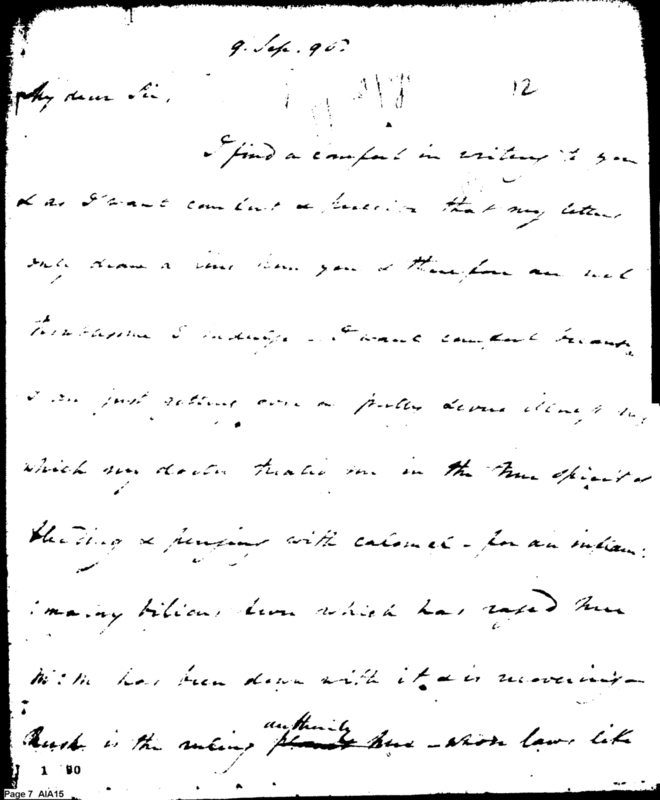 9. Sep. 96.
12
My dear Sir,
I find a comfort in writing to you
& as I want comfort & that my letters
only draw a line from you & therefore are not
troublesome I indulge - I want comfort because
I am just getting over a severe illness
which my doctor treated me in the true spirit of
bleeding & purging with calomel - for an inflam:
:matory bilious fever which has raged here
M:M has been down with it & is recovering -
Rush is the ruling authority here - whose laws like
1 90
Page 7 AIA15